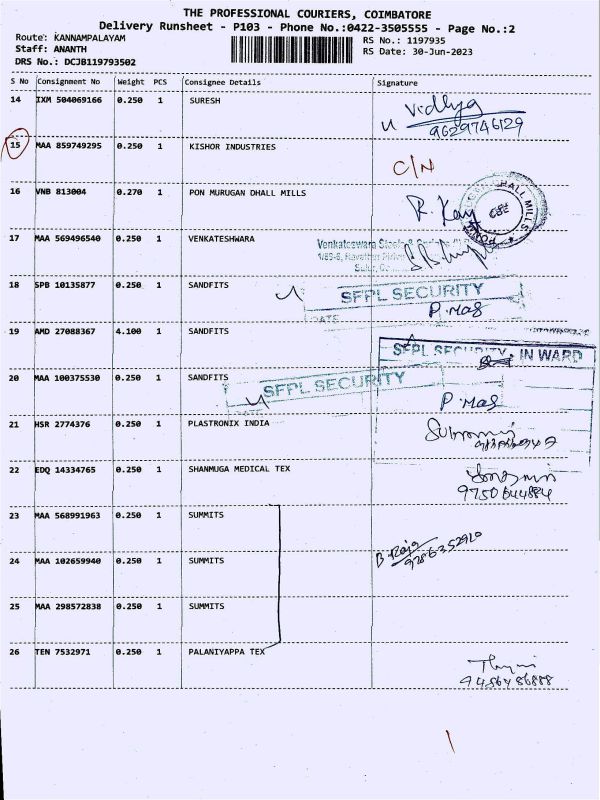 THE PROFESSIONAL COURIERS, COIMBATORE
Delivery Runsheet - P103 - Phone No.:0422-3505555 - Page No.:2
Route: KANNAMPALAYAM
Staff: ANANTH
DRS No.: DCJB119793502
RS No.: 1197935
RS Date: 30-Jun-2023
S No Consignment No Weight PCS Consignee Details Signature
14 IXM 504069166 0.250 1 SURESH Vidhya
9629746129
15 MAA 859749295 0.250 1 KISHOR INDUSTRIES C/N
16 VNB 813004 0.270 1 PON MURUGAN DHALL MILLS R. Kay
DHALL MILLS
17 MAA 569496540 0.250 1 VENKATESHWARA Venkateswara Steels &
18 SPB 10135877 0.250 1 SANDFITS SFPL SECURITY
DATE P. Mas
19 AMD 27088367 4.100 1 SANDFITS SFPL SECURITY IN WARD
20 MAA 100375530 0.250 1 SANDFITS SFPL SECURITY P. Mas
DATE
21 HSR 2774376 0.250 1 PLASTRONIX INDIA
22 EDQ 14334765 0.250 1 SHANMUGA MEDICAL TEX
9750644884
23 MAA 568991963 0.250 1 SUMMITS
24 MAA 102659940 0.250 1 SUMMITS B Raja
9286352920
25 MAA 298572838 0.250 1 SUMMITS
26 TEN 7532971 0.250 1 PALANIYAPPA TEX
9486486888